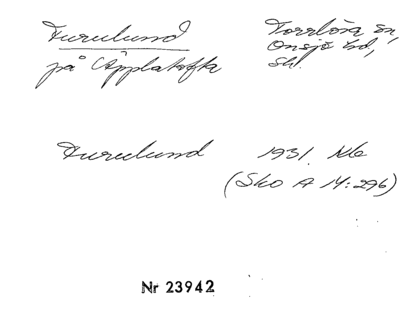 Furulund Torrlösa sn,
på Äpplatofta Onsjö hd,
Sk.
Furulund 1931. Kb
(Sko A 14:296)
Nr 23942